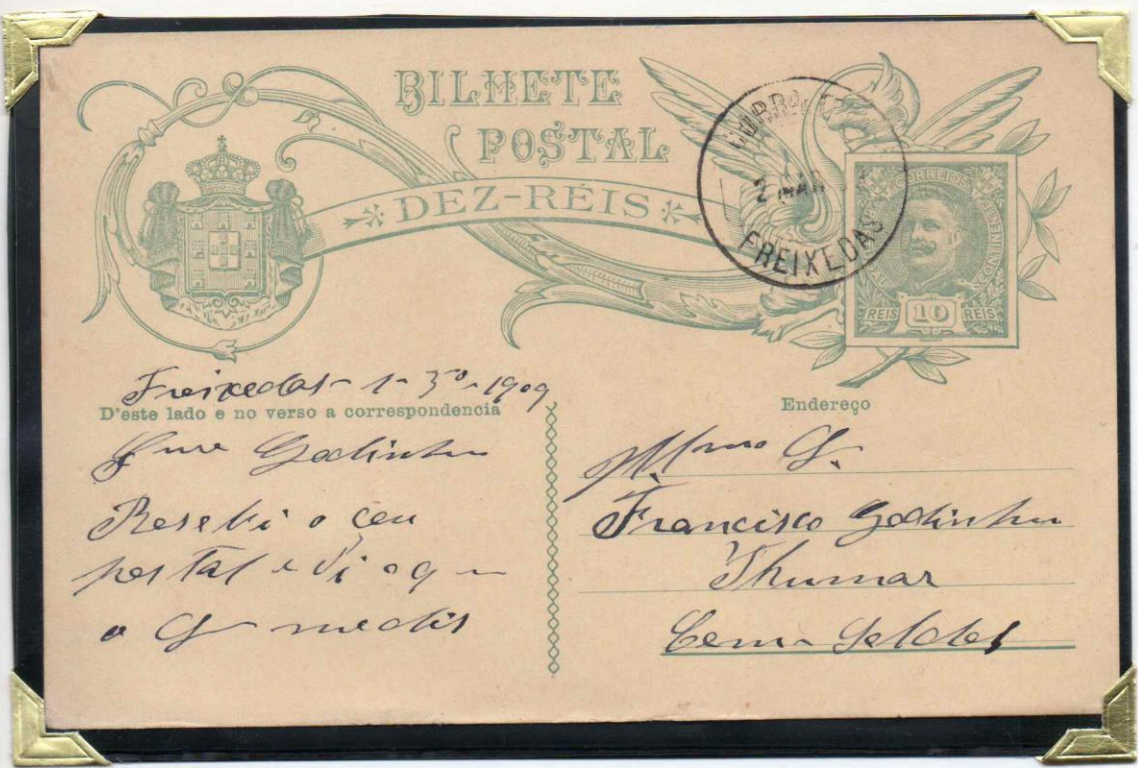 BILHETE
POSTAL
DEZ-RÉIS
2 MAR
FREIXEDAS
CORREIOS
REIS 10 REIS
Freixedas 1-3º-1909
D'este lado e no verso a correspondencia
Godinho
Resebi o ceu
postal e vi o q
o Sr me dis
Endereço
Illmo Sr.
Francisco Godinho
Thumar